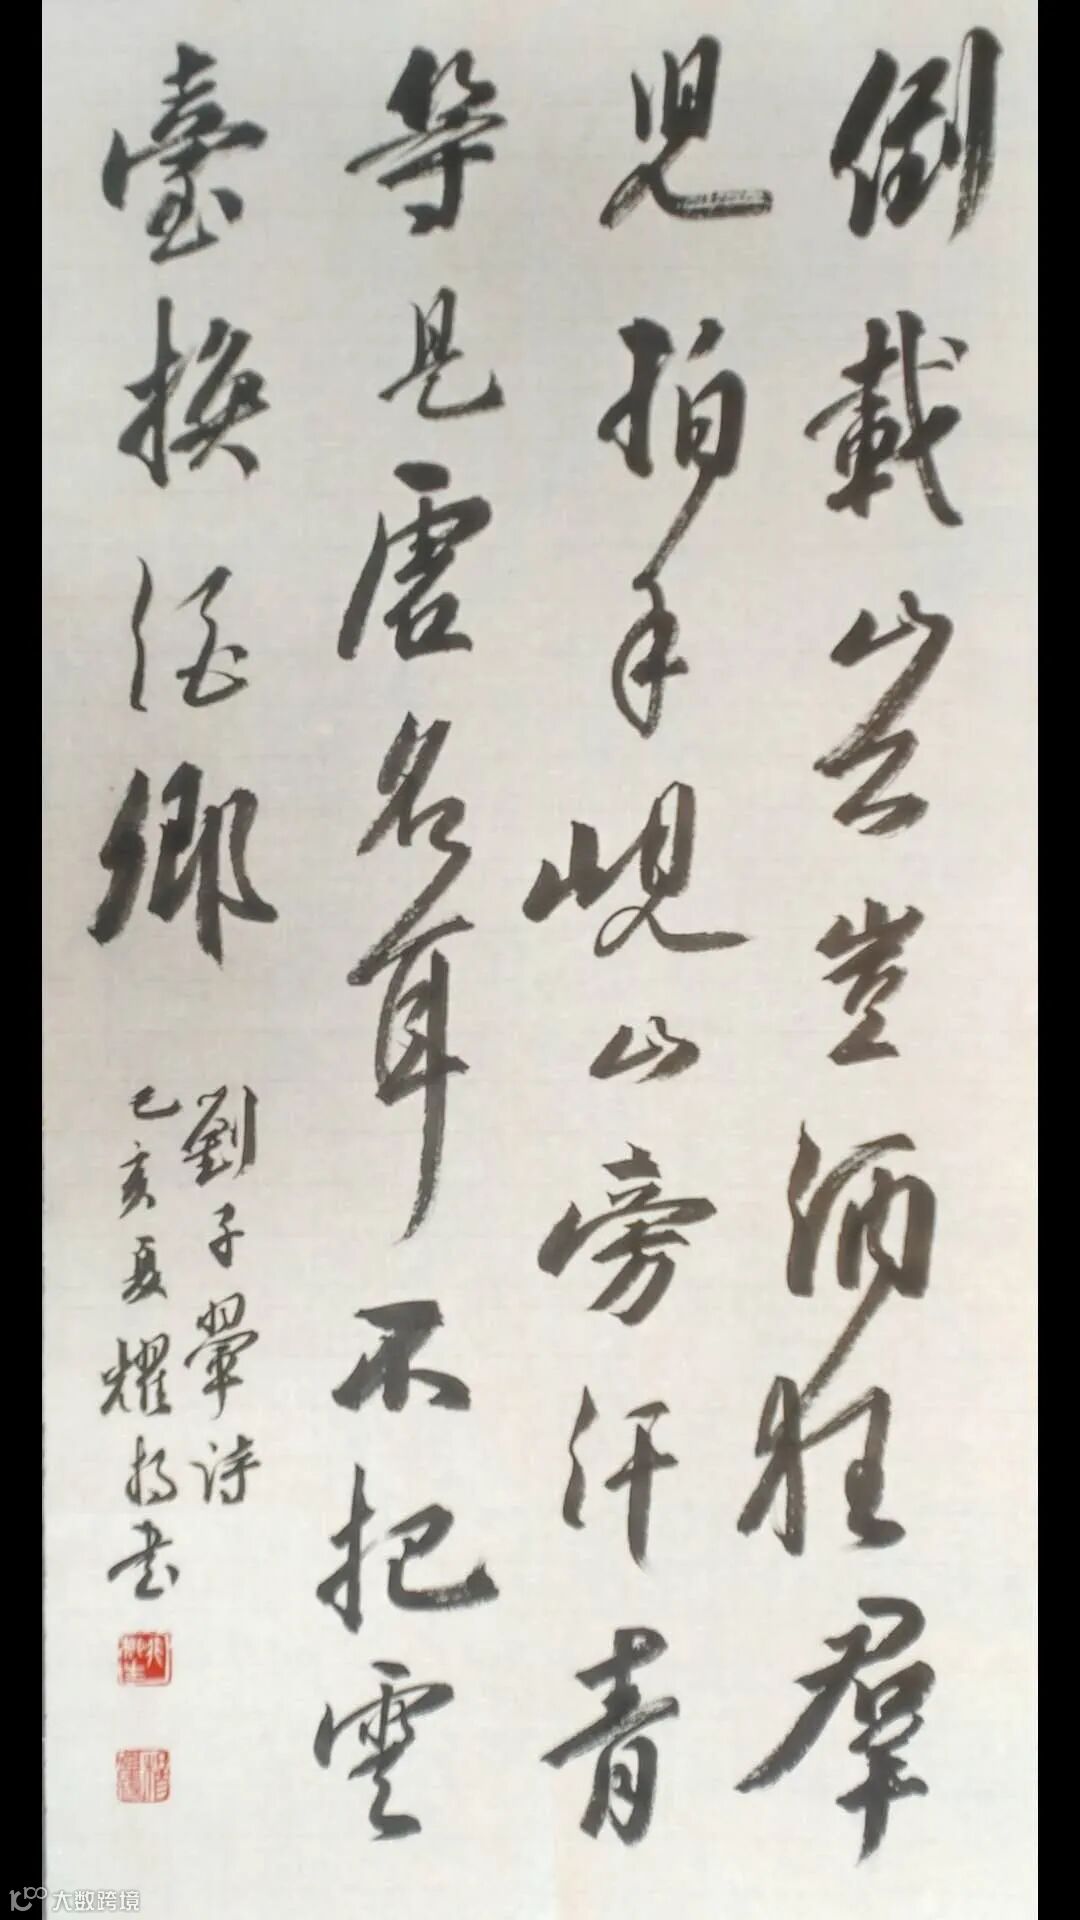 倒載山公豈酒狂羣
児拍手峴山旁汗青
等是虛名耳不把雲
臺換酒鄉
劉子翬詩
己亥夏耀書
大数跨境